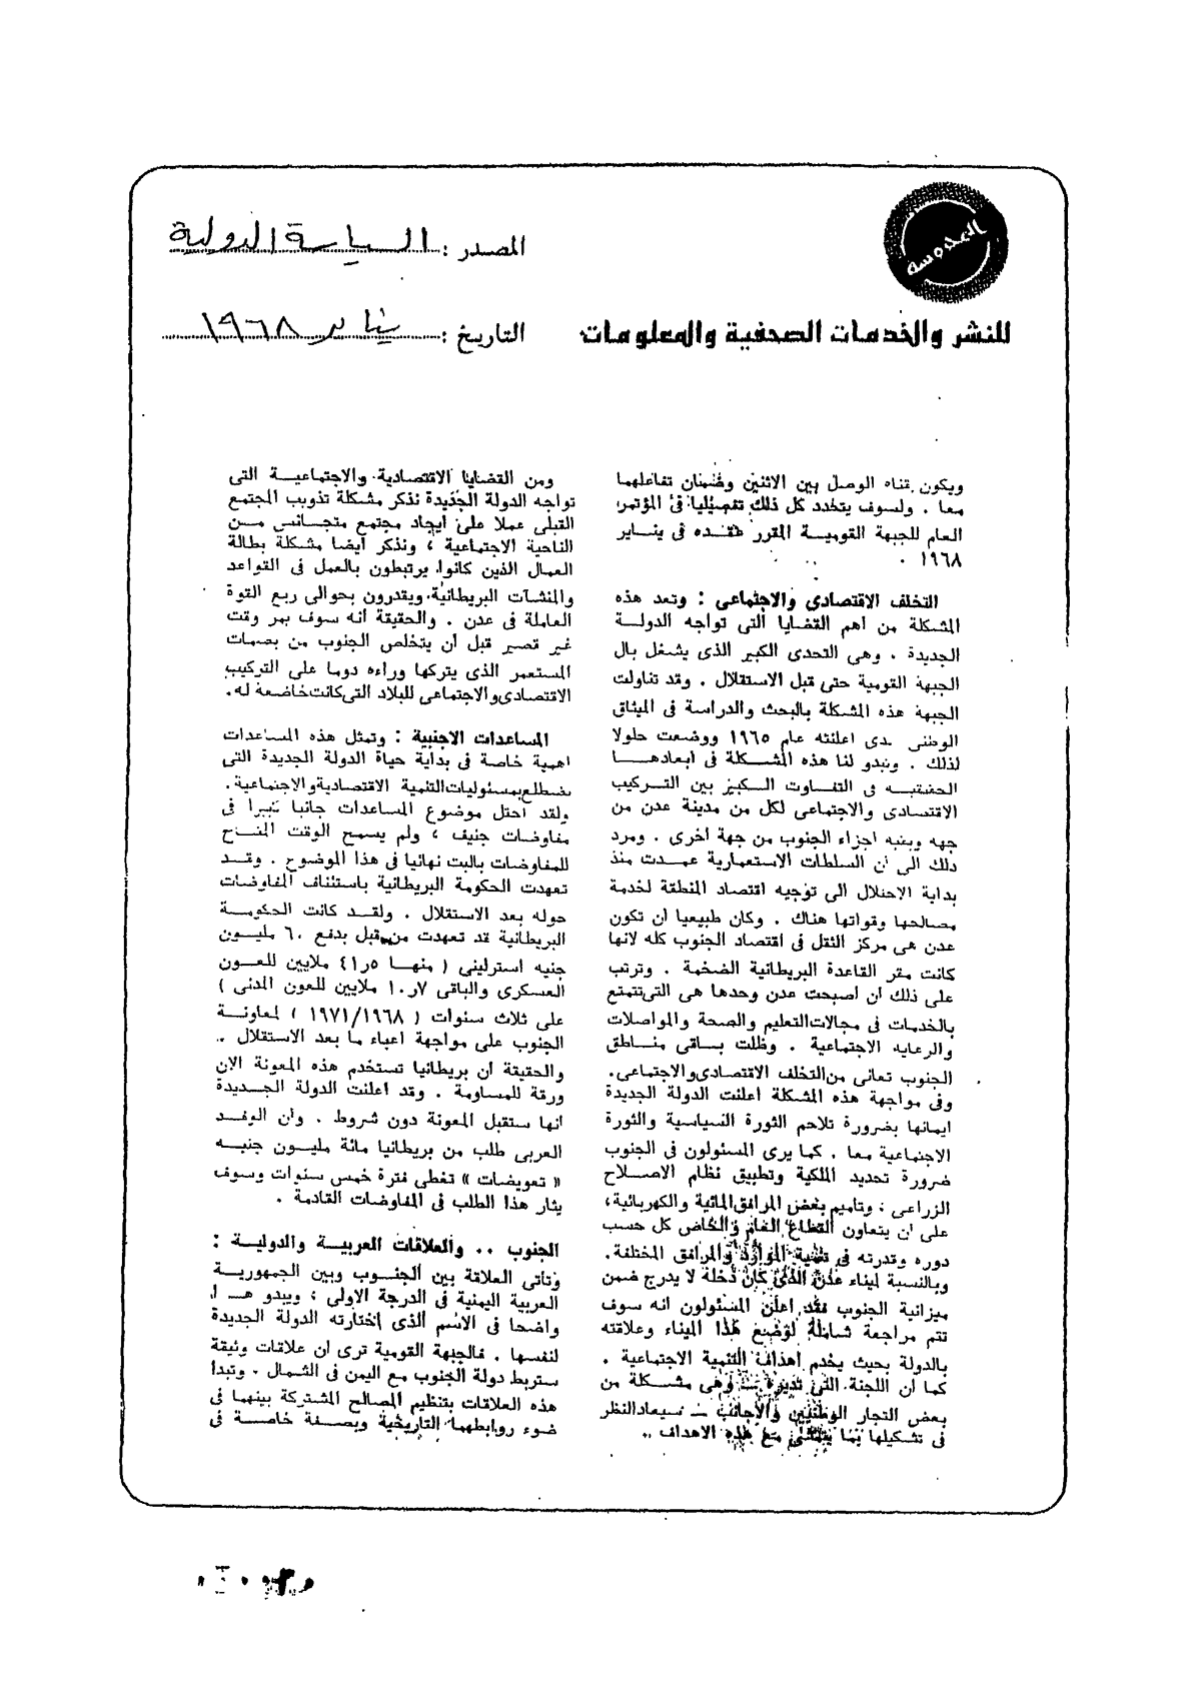 العدوسة
للنشر والخدمات الصحفية والمعلومات
المصدر : السياسة الدولية
التاريخ : يناير ١٩٦٨
ويكون قناه الوصل بين الاثنين وضمان تفاعلهما
معا . ولسوف يتحدد كل ذلك تفصيليا في المؤتمر
العام للجبهة القوميـــة المقرر عقـــده فى ينــاير
١٩٦٨ .
التخلف الاقتصادى والاجتماعى : وتعد هذه
المشكلة من اهم القضايا التى تواجه الدولـــة
الجديدة . وهى التحدى الكبير الذى يشغل بال
الجبهة القومية حتى قبل الاستقلال . وقد تناولت
الجبهة هذه المشكلة بالبحث والدراسة فى الميثاق
الوطنى اعلنته عام ١٩٦٥ ووضعت حلولا
لذلك . وتبدو لنا هذه المشـــكلة فى ابعادهـــا
فى التفـــاوت الـــكبير بين التـــركيب
الاقتصادى والاجتماعى لكل من مدينة عدن من
جهه وبقيه اجزاء الجنوب من جهة اخرى . ومرد
ذلك الى ان السلطات الاستعمارية عمـــدت منذ
بداية الاحتلال الى توجيه اقتصاد المنطقة لخدمة
مصالحها وقواتها هناك . وكان طبيعيا ان تكون
عدن هى مركز الثقل فى اقتصاد الجنوب كله لانها
كانت مقر القاعدة البريطانية الضخمة . وترتب
على ذلك ان اصبحت عدن وحدها هى التى تتمتع
بالخدمات فى مجالات التعليم والصحة والمواصلات
والرعايه الاجتماعية . وظلت بـــاقى منـــاطق
الجنوب تعانى من التخلف الاقتصادى والاجتماعى.
وفى مواجهة هذه المشكلة اعلنت الدولة الجديدة
ايمانها بضرورة تلاحم الثورة السياسية والثورة
الاجتماعية معا . كما يرى المسئولون فى الجنوب
ضرورة تحديد الملكية وتطبيق نظام الاصـــلاح
الزراعى ، وتاميم بعض المرافق المائية والكهربائية ،
على ان يتعاون القطاع العام والخاص كل حسب
دوره وقدرته فى تنمية الموارد والمرافق المختلفة .
وبالنسبة لميناء عدن الذى كان دخله لا يدرج ضمن
ميزانية الجنوب فقد اعلن المسئولون انه سوف
تتم مراجعة شاملة لوضع هذا الميناء وعلاقته
بالدولة بحيث يخدم اهداف التنمية الاجتماعية .
كما ان اللجنة التى تديره ــ وهى مشـــكلة من
بعض التجار الوطنيين والاجانب ــ سيعاد النظر
فى تشكيلها بما يتمشى مع هذه الاهداف ..
ومن القضايا الاقتصادية والاجتماعيـــة التى
تواجه الدولة الجديدة نذكر مشكلة تذويب المجتمع
القبلى عملا على ايجاد مجتمع متجـــانس مـــن
الناحية الاجتماعية ، ونذكر ايضا مشكلة بطالة
العمال الذين كانوا يرتبطون بالعمل فى القواعد
والمنشآت البريطانية ويقدرون بحوالى ربع القوة
العاملة فى عدن . والحقيقة انه سوف يمر وقت
غير قصير قبل ان يتخلص الجنوب من بصمات
المستعمر الذى يتركها وراءه دوما على التركيب
الاقتصادى والاجتماعى للبلاد التى كانت خاضعة له .
المساعدات الاجنبية : وتمثل هذه المساعدات
اهمية خاصة فى بداية حياة الدولة الجديدة التى
تضطلع بمسئوليات التنمية الاقتصادية والاجتماعية .
ولقد احتل موضوع المساعدات جانبا كبيرا فى
مفاوضات جنيف ، ولم يسمح الوقت المتـــاح
للمفاوضات بالبت نهائيا فى هذا الموضوع . وقـــد
تعهدت الحكومة البريطانية باستئناف المفاوضات
حوله بعد الاستقلال . ولقـــد كانت الحكومـــة
البريطانية قد تعهدت من قبل بدفع ٦٠ مليـــون
جنيه استرلينى ( منهـــا ٤١٫٥ ملايين للعـــون
العسكرى والباقى ١٠٫٧ ملايين للعون المدنى )
على ثلاث سنوات ( ١٩٧١/١٩٦٨ ) لمعاونـــة
الجنوب على مواجهة اعباء ما بعد الاستقلال ..
والحقيقة ان بريطانيا تستخدم هذه المعونة الان
ورقة للمساومة . وقد اعلنت الدولة الجـــديدة
انها ستقبل المعونة دون شروط . وان الوفـــد
العربى طلب من بريطانيا مائة مليـــون جنيـــه
« تعويضات » تغطى فترة خمس سنوات وسوف
يثار هذا الطلب فى المفاوضات القادمة .
الجنوب .. والعلاقات العربيـــة والدوليـــة :
وتأتى العلاقة بين الجنـــوب وبين الجمهوريـــة
العربية اليمنية فى الدرجة الاولى ، ويبدو هـــذا
واضحا فى الاسم الذى اختارته الدولة الجديدة
لنفسها . فالجبهة القومية ترى ان علاقات وثيقة
ستربط دولة الجنوب مع اليمن فى الشمال . وتبدأ
هذه العلاقات بتنظيم المصالح المشتركة بينهما فى
ضوء روابطهما التاريخية وبصـــفة خاصـــة فى